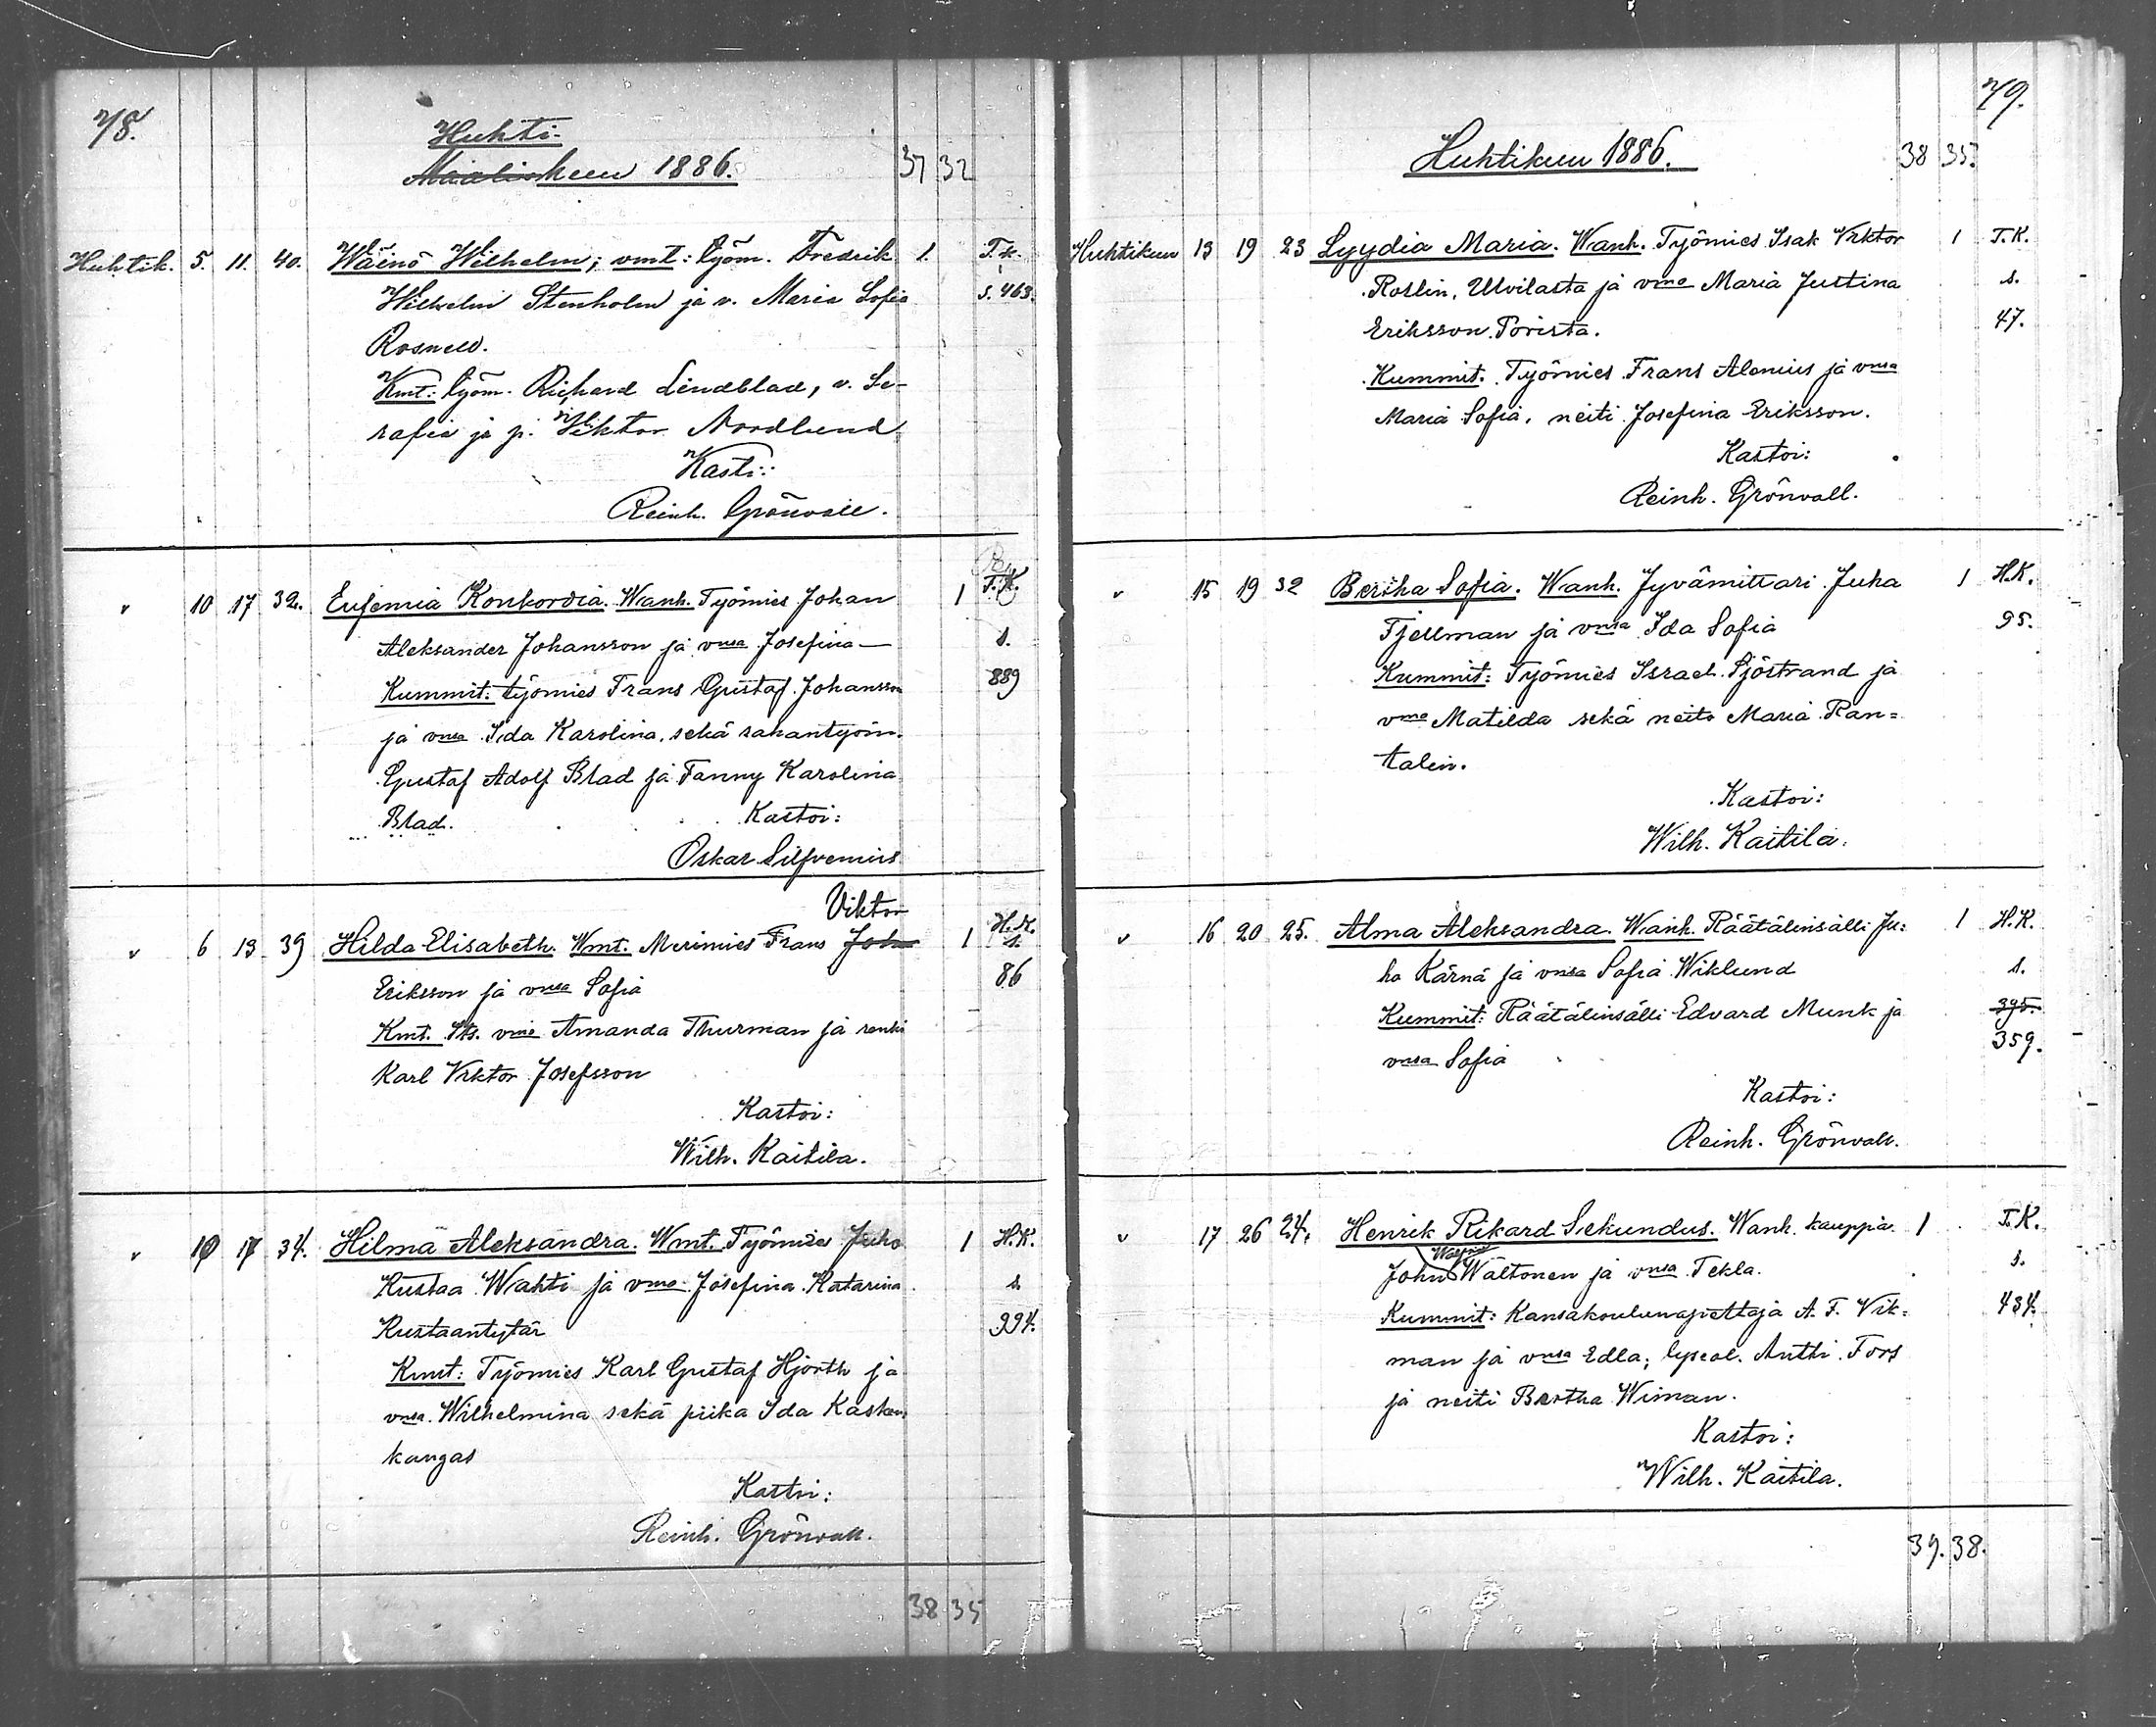 78.
Huhti-
Maaliskuu 1886. 37 32
Huhtik. 5. 11. 40. Wäinö Wilhelm; vmt: työm. Fredrik 1. T.K.
Wilhelm Stenholm ja v. Maria Sofia s. 463.
Rosnell.
Kmt: työm. Richard Lindblad, v. Se-
rafia ja p. Viktor Nordlund
Kasti:
Reinh. Grönvall.
" 10 17 32. Eufemia Konkordia. Wanh. Työmies Johan 1 T.K.
Aleksander Johansson ja vmsa Josefina — s.
Kummit: työmies Frans Gustaf Johansson 889
ja vmsa Ida Karolina, sekä sahantyöm.
Gustaf Adolf Blad ja Fanny Karolina
Blad. Kastoi:
Oskar Silfvenius
Viktor
" 6 13 39 Hilda Elisabeth. Wmt. Merimies Frans Joh 1 H.K.
s.
Eriksson ja vmsa Sofia 86
Kmt. Its. vmo Amanda Thurman ja renki
Karl Viktor Josefsson
Kastoi:
Wilh. Kaitila.
" 10 17 34. Hilma Aleksandra. Wmt. Työmies Juho 1 H.K.
Kustaa Wahti ja vmo Josefina Katarina s.
Kustaantytär 994.
Kmt: Työmies Karl Gustaf Hjorth ja
vmsa Wilhelmina sekä piika Ida Kasken-
kangas
Kastoi:
Reinh. Grönvall.
38 35
79.
Huhtikuu 1886. 38 35.
Huhtikuu 13 19 23 Lyydia Maria. Wanh. Työmies Isak Viktor 1 T.K.
Roslin, Ulvilasta ja vmo Maria Justina s.
Eriksson Porista. 47.
Kummit. Työmies Frans Alenius ja vmsa
Maria Sofia, neiti Josefina Eriksson.
Kastoi:
Reinh. Grönvall.
" 15 19 32 Bertha Sofia. Wanh. Jyvämittari Juha 1 H.K.
Fjellman ja vmsa Ida Sofia 95.
Kummit: Työmies Israel Sjöstrand ja
vmo Matilda sekä neito Maria Ran=
talin.
Kastoi:
Wilh. Kaitila.
" 16 20 25. Alma Aleksandra. Wanh. Räätälinsälli Ju= 1 H.K.
ho Kärnä ja vmsa Sofia Wiklund s.
Kummit: Räätälinsälli Edvard Munk ja 395.
vmsa Sofia 359.
Kastoi:
Reinh. Grönvall.
" 17 26 24. Henrik Rikard Sekundus. Wanh. kauppia 1 T.K.
John Waltonen ja vmsa Tekla. s.
Kummit: Kansakoulunopettaja A. F. Vik= 434.
man ja vmsa Edla; lyseol. Antti Fors
ja neiti Bertha Wiman.
Kastoi:
Wilh. Kaitila.
39. 38.